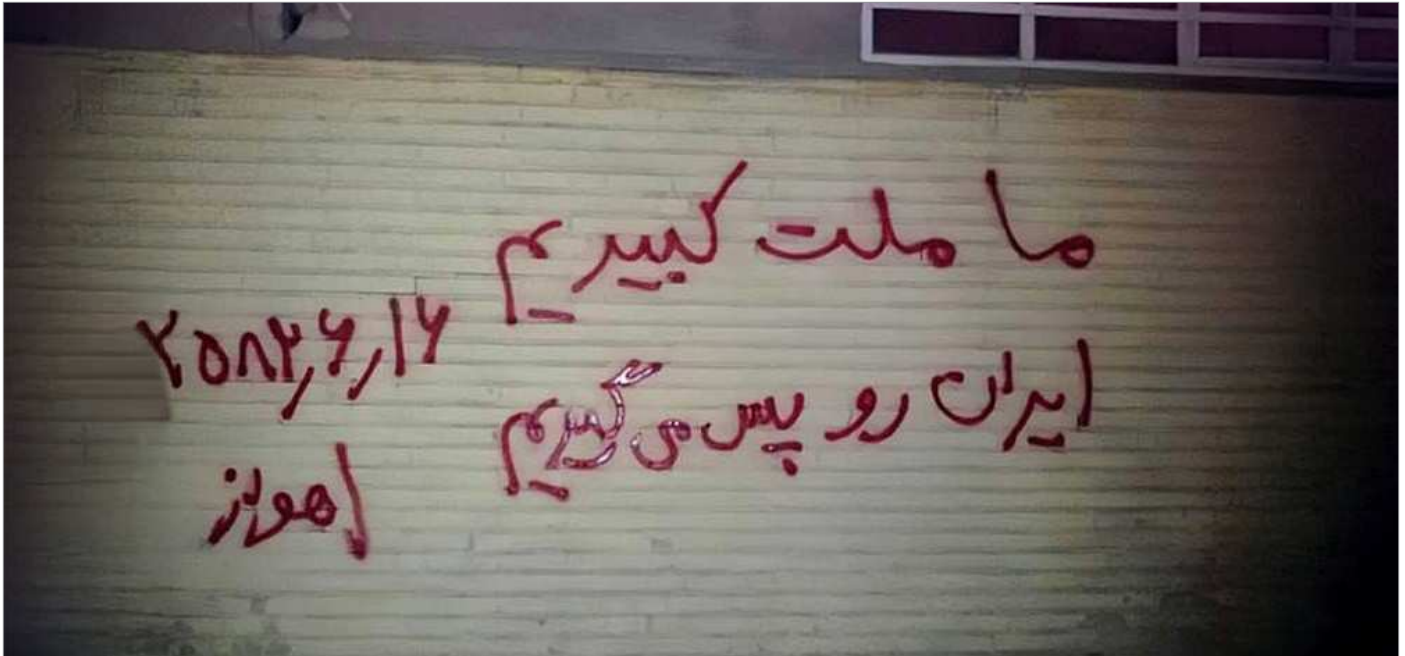 ما ملت کبیریم
ایران رو پس می گیریم
۲۵۸۴,۶,۱۶
اهواز